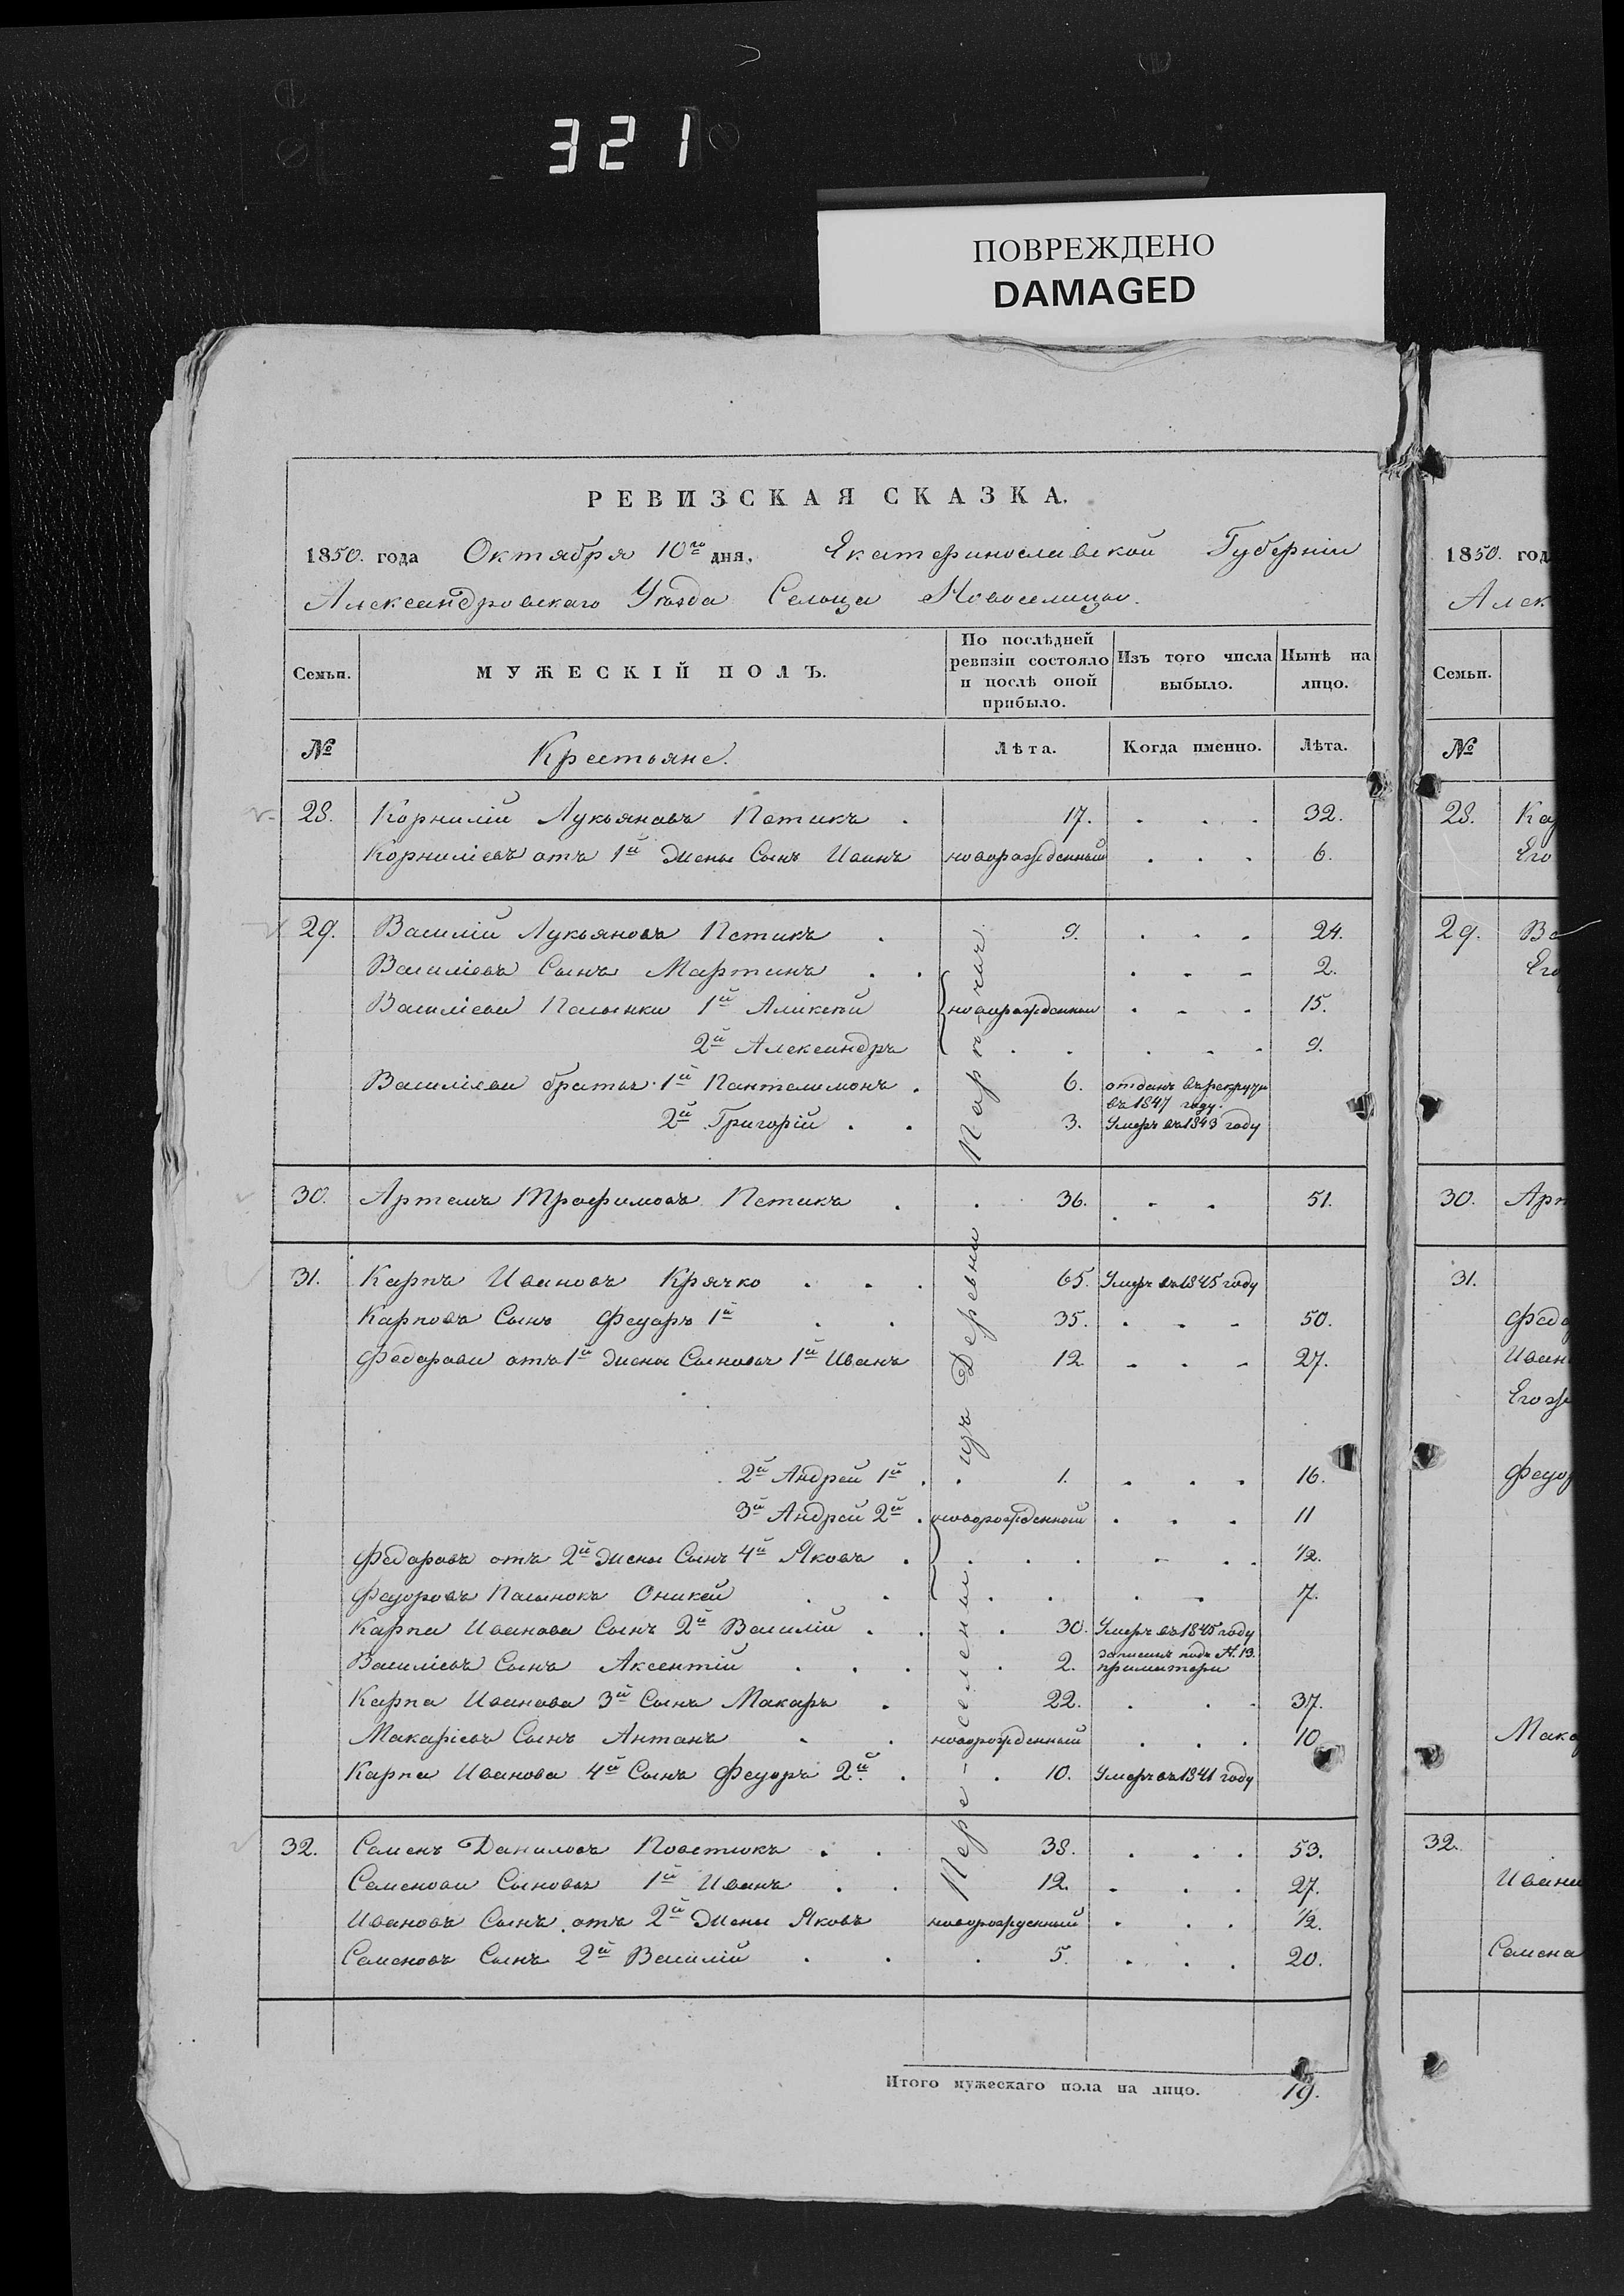 321
ПОВРЕЖДЕНО
DAMAGED
РЕВИЗСКАЯ СКАЗКА.
1850. года Октября 10го дня. Екатеринославской Губерніи
Александровскаго Уѣзда Сельца Новоселицы.
Семьи. МУЖЕСКІЙ ПОЛЪ. По послѣдней ревизіи состояло и послѣ оной прибыло. Изъ того числа выбыло. Нынѣ на лицо.
№ Крестьяне. Лѣта. Когда именно. Лѣта.
28. Корнилій Лукьяновъ Петикъ . 17. . . . 32.
Корниліевъ отъ 1й жены Сынъ Иванъ новорожденный . . . 6.
29. Василій Лукьяновъ Петикъ . 9. . . . 24.
Василіевъ Сынъ Мартинъ . . . . . 2.
Василіевы Пасынки 1й Аликсѣй новорожденные . . . 15.
2й Александръ . . . . . 9.
Василіевы братья 1й Пантелимонъ . 6. отданъ въ рекруты
въ 1847 году.
2й Григорій . . 3. Умеръ въ 1843 году
30. Артемъ Трофимовъ Петикъ . . 36. . . . 51.
31. Карпъ Ивановъ Крячко . . . 65. Умеръ въ 1845 году
Карповъ Сынъ Феуоръ 1й . . 35. . . . 50.
Федоровы отъ 1й жены Сыновья 1й Иванъ 12 . . . 27.
2й Андрей 1й . . 1. . . . 16.
3й Андрей 2й . новорожденный . . . 11
Федоровъ отъ 2й жены Сынъ 4й Яковъ . . . . . . . 1/2.
Феуоровъ Пасынокъ Оникей . . . . . . 7.
Карпа Иванова Сынъ 2й Василій . . . 30. Умеръ въ 1845 году
Василіевъ Сынъ Аксентій . . . . 2. записанъ подъ №. 13.
приматери
Карпа Иванова 3й Сынъ Макаръ . 22. . . . 37.
Макаріевъ Сынъ Антонъ . . новорожденный . . . 10
Карпа Иванова 4й Сынъ Феуоръ 2й. . . 10. Умеръ въ 1841 году
32. Семенъ Даниловъ Повстюкъ . . 38. . . . 53.
Семеновы Сыновья 1й Иванъ . . 12. . . . 27.
Ивановъ Сынъ отъ 2й жены Яковъ новорожденный . . . 1/2.
Семеновъ Сынъ 2й Василій . . . 5. . . . 20.
Пере-селены изъ Деревни
Итого мужескаго пола на лицо. 19.
1850. год
Алек
Семьи.
№
28. Ка
Его
29. Ва
Его
30. Арт
31.
Федо
Иван
Его ж
Феуор
Мака
32.
Ивана
Семена